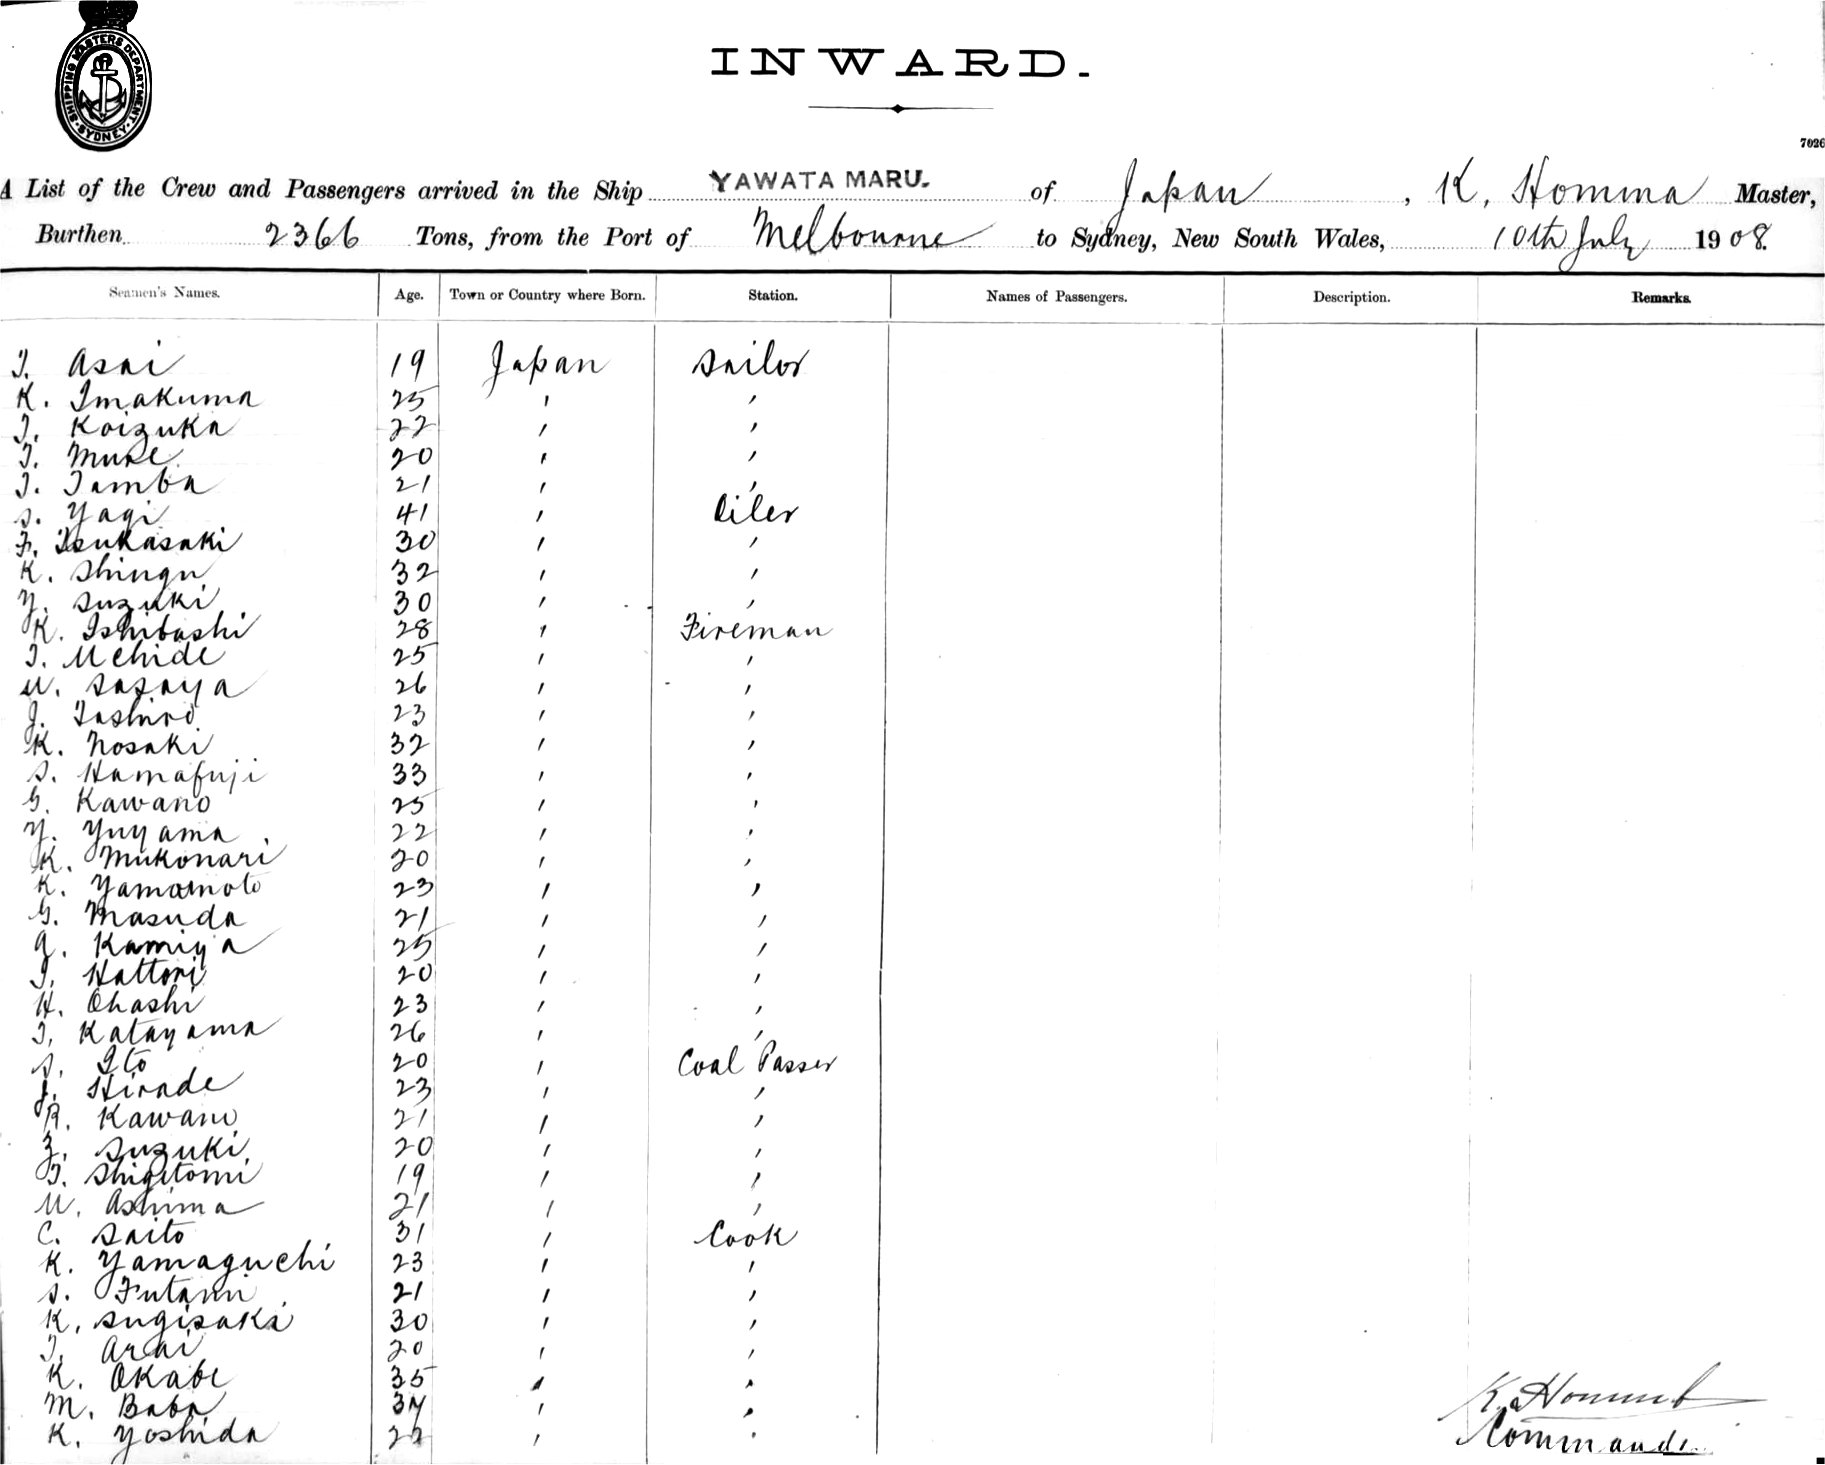 SHIPPING MASTERS DEPARTMENT
SYDNEY
INWARD.
7026
A List of the Crew and Passengers arrived in the Ship YAWATA MARU. of Japan, K. Homma Master,
Burthen 2366 Tons, from the Port of Melbourne to Sydney, New South Wales, 10th July 1908.
Seamen's Names. Age. Town or Country where Born. Station. Names of Passengers. Description. Remarks.
T. Asai 19 Japan Sailor
K. Imakuma 25 ' '
T. Koizuka 22 ' '
T. Mure 20 ' '
T. Tamba 21 ' '
S. Yagi 41 ' Oiler
F. Tsukasaki 30 ' '
K. Shingu 32 ' '
Y. Suzuki 30 ' '
K. Ishibashi 28 ' Fireman
T. Uchide 25 ' '
U. Sasaya 26 ' '
J. Tashiro 23 ' '
K. Nosaki 32 ' '
S. Hamafuji 33 ' '
G. Kawano 25 ' '
Y. Yuyama 22 ' '
K. Mukonari 20 ' '
K. Yamamoto 23 ' '
G. Masuda 21 ' '
Kamiya 25 ' '
T. Hattori 20 ' '
H. Ohashi 23 ' '
T. Katayama 26 ' '
S. Ito 20 ' Coal Passer
J. Hirade 23 ' '
R. Kawano 21 ' '
Z. Suzuki 20 ' '
T. Shigitomi 19 ' '
U. Ashima 21 ' '
C. Saito 31 ' Cook
K. Yamaguchi 23 ' '
S. Futami 21 ' '
K. Sugisaki 30 ' '
T. Arai 20 ' '
K. Okabe 35 ' '
M. Baba ' '
K. Yoshida ' '
K. Homma
Commander